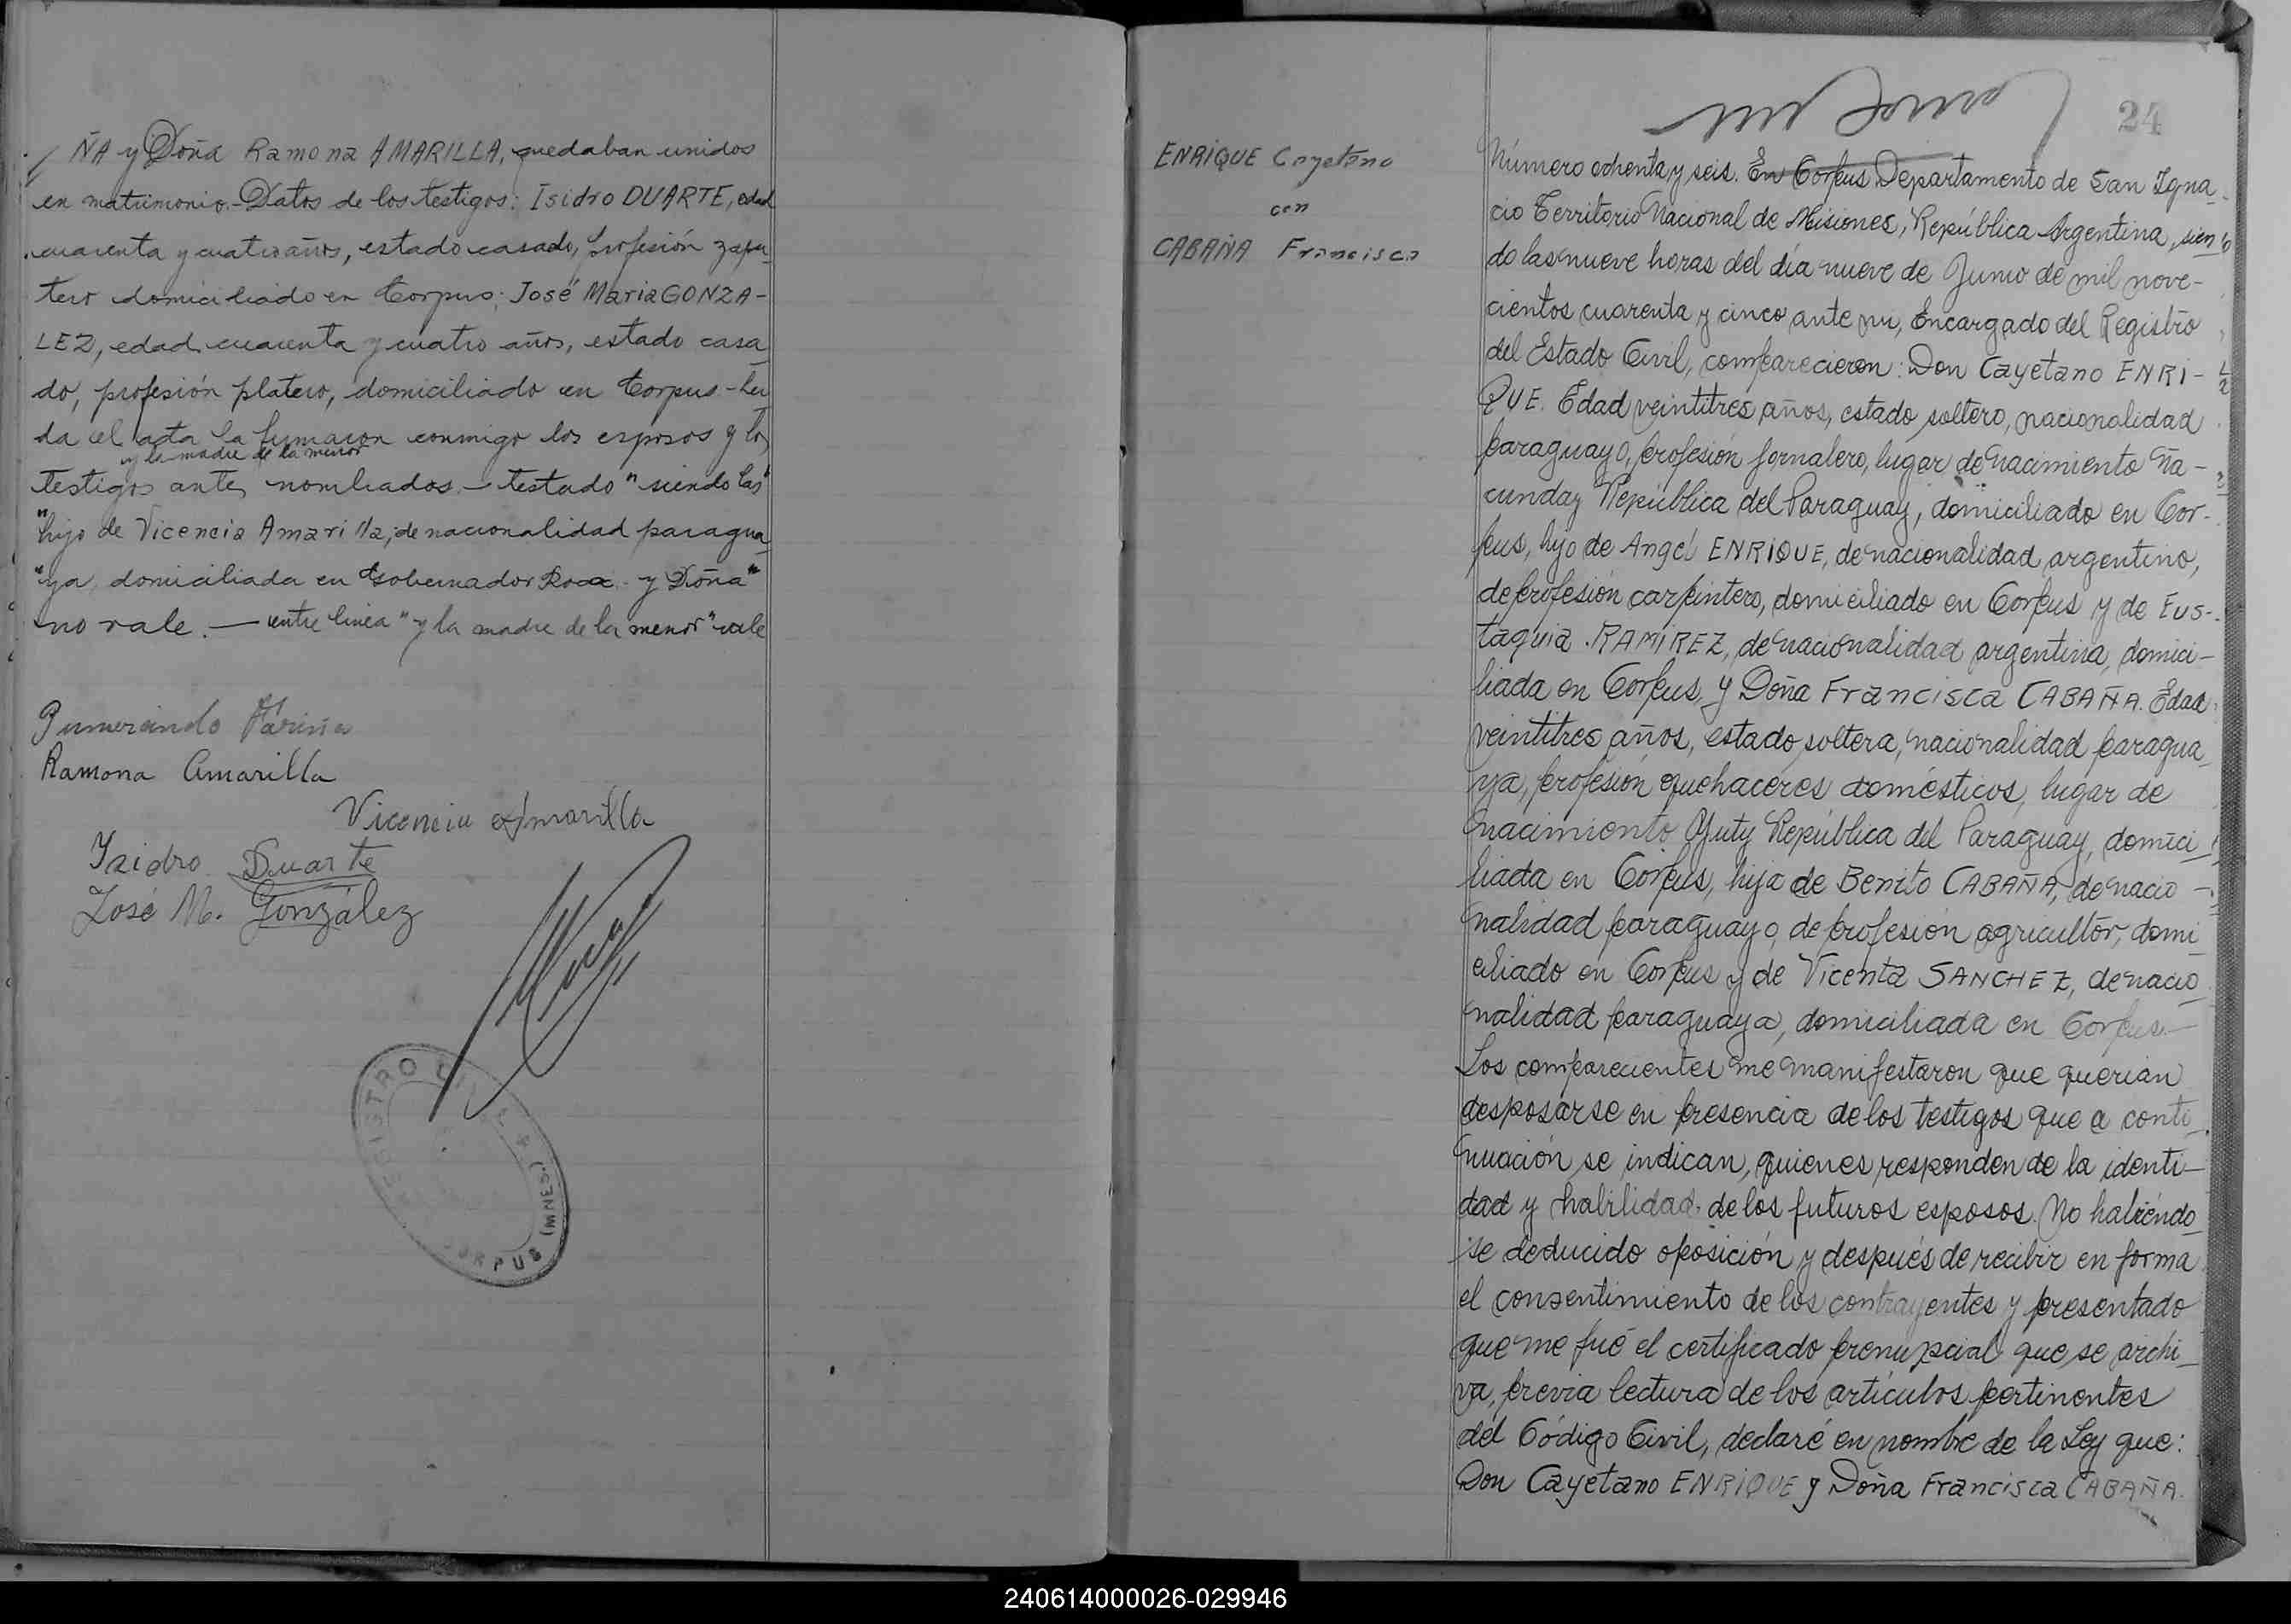 ÑA y Doña Ramona AMARILLA, quedaban unidos
en matrimonio.- Datos de los testigos: Isidro DUARTE, edad
cuarenta y cuatro años, estado casado, profesión zapa-
tero domiciliado en Corpus; José Maria GONZA-
LEZ, edad cuarenta y cuatro años, estado casa
do, profesión platero, domiciliado en Corpus.- Leí
da el acta la firmaron conmigo los esposos y los
y la madre de la menor
testigos antes nombrados.— testado "siendo las"
"hijo de Vicencia Amarilla, de nacionalidad paragua
"ya, domiciliada en Gobernador Roca - y Doña"
no vale.— entre linea "y la madre de la menor" vale
Pumercindo Fariña
Ramona Amarilla
Vicencia Amarilla
Izidro Duarte
José M. González
REGISTRO CIVIL
CORPUS (MNES.)
24
ENRIQUE Cayetano
con
CABAÑA Francisca
Número ochenta y seis. En Corpus Departamento de San Igna
cio Territorio Nacional de Misiones, República Argentina, sien
do las nueve horas del día nueve de Junio de mil nove-
cientos cuarenta y cinco ante mi, Encargado del Registro
del Estado Civil, comparecieron: Don Cayetano ENRI-
QUE. Edad veintitres años, estado soltero, nacionalidad
paraguayo, profesión jornalero, lugar de nacimiento Ña-
cunday República del Paraguay, domiciliado en Cor-
pus, hijo de Angel ENRIQUE, de nacionalidad argentino,
de profesión carpintero, domiciliado en Corpus y de Eus-
taquia RAMIREZ, de nacionalidad argentina, domici-
liada en Corpus, y Doña Francisca CABAÑA. Edad
veintitres años, estado soltera, nacionalidad paragua
ya, profesión quehaceres domésticos, lugar de
nacimiento Yuty República del Paraguay, domici
liada en Corpus, hija de Benito CABAÑA, de nacio-
nalidad paraguayo, de profesion agricultor, domi
ciliado en Corpus y de Vicenta SANCHEZ, de nacio
nalidad paraguaya, domiciliada en Corpus.—
Los comparecientes me manifestaron que querian
desposarse en presencia de los testigos que a conti
nuación se indican, quienes responden de la identi-
dad y habilidad de los futuros esposos. No habiéndo
se deducido oposición y después de recibir en forma
el consentimiento de los contrayentes y presentado
que me fué el certificado prenupcial que se archi
va, previa lectura de los artículos pertinentes
del Código Civil, declaré en nombre de la Ley que:
Don Cayetano ENRIQUE y Doña Francisca CABAÑA.
240614000026-029946